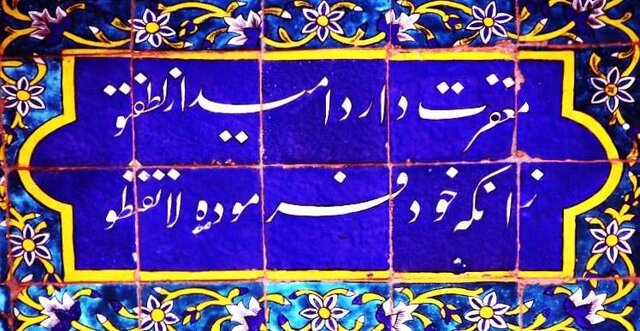 مغفرت دارد امید از لطف تو
زانکه خود فرموده لا تقنطو